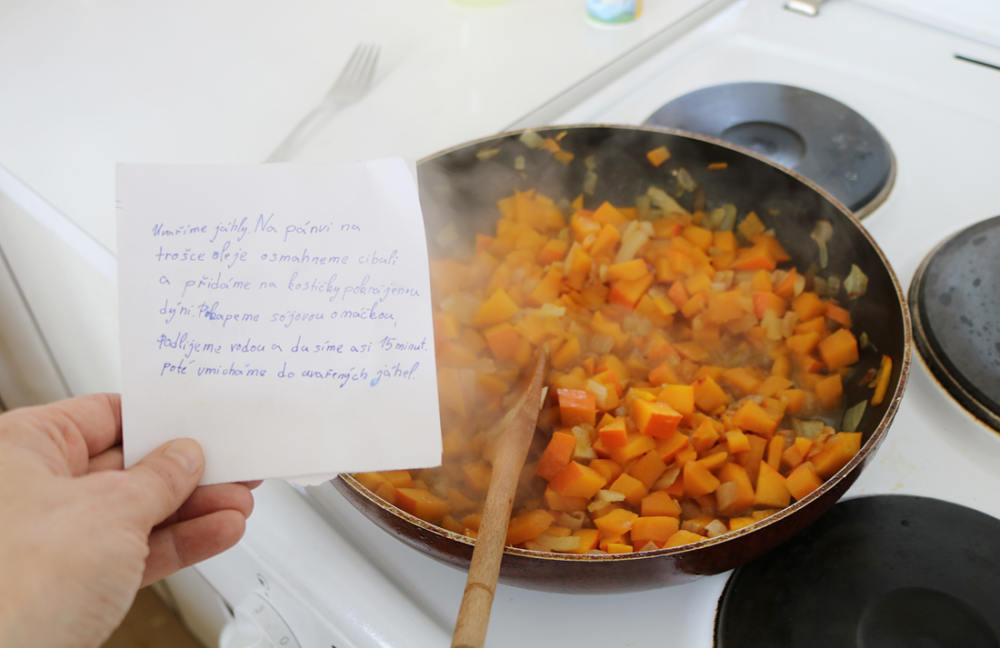 Uvaříme jáhly. Na pánvi na
trošce oleje osmahneme cibuli
a přidáme na kostičky pokrájenou
dýni. Pokapeme sójovou omáčkou,
podlijeme vodou a dusíme asi 15 minut.
Poté vmícháme do uvařených jáhel.